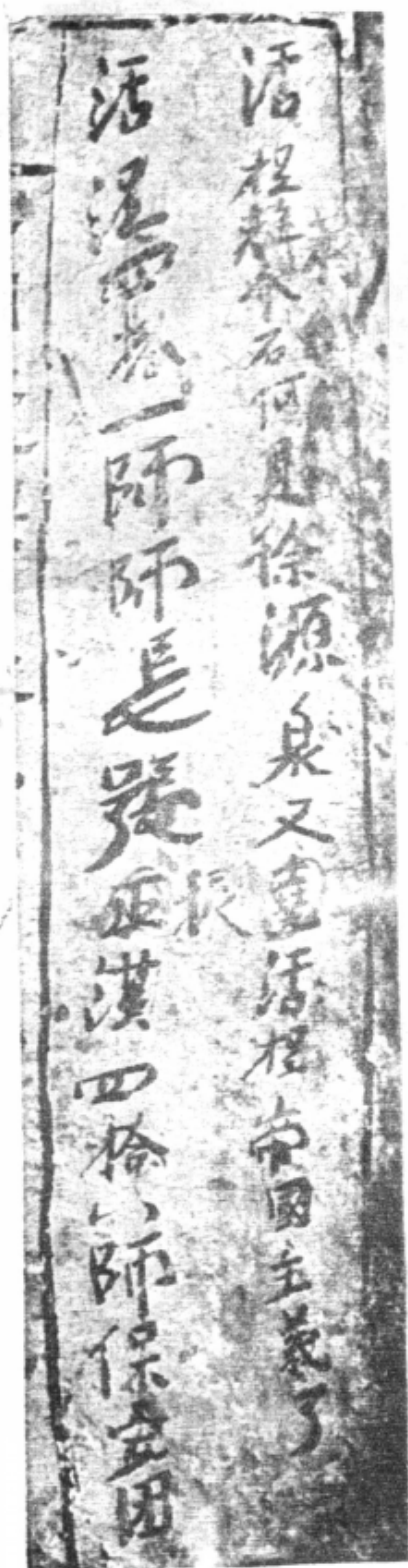 活捉蔣介石何見徐源泉又活捉帝國主義了
活捉四拾一師師長張正振漢四拾八師保团